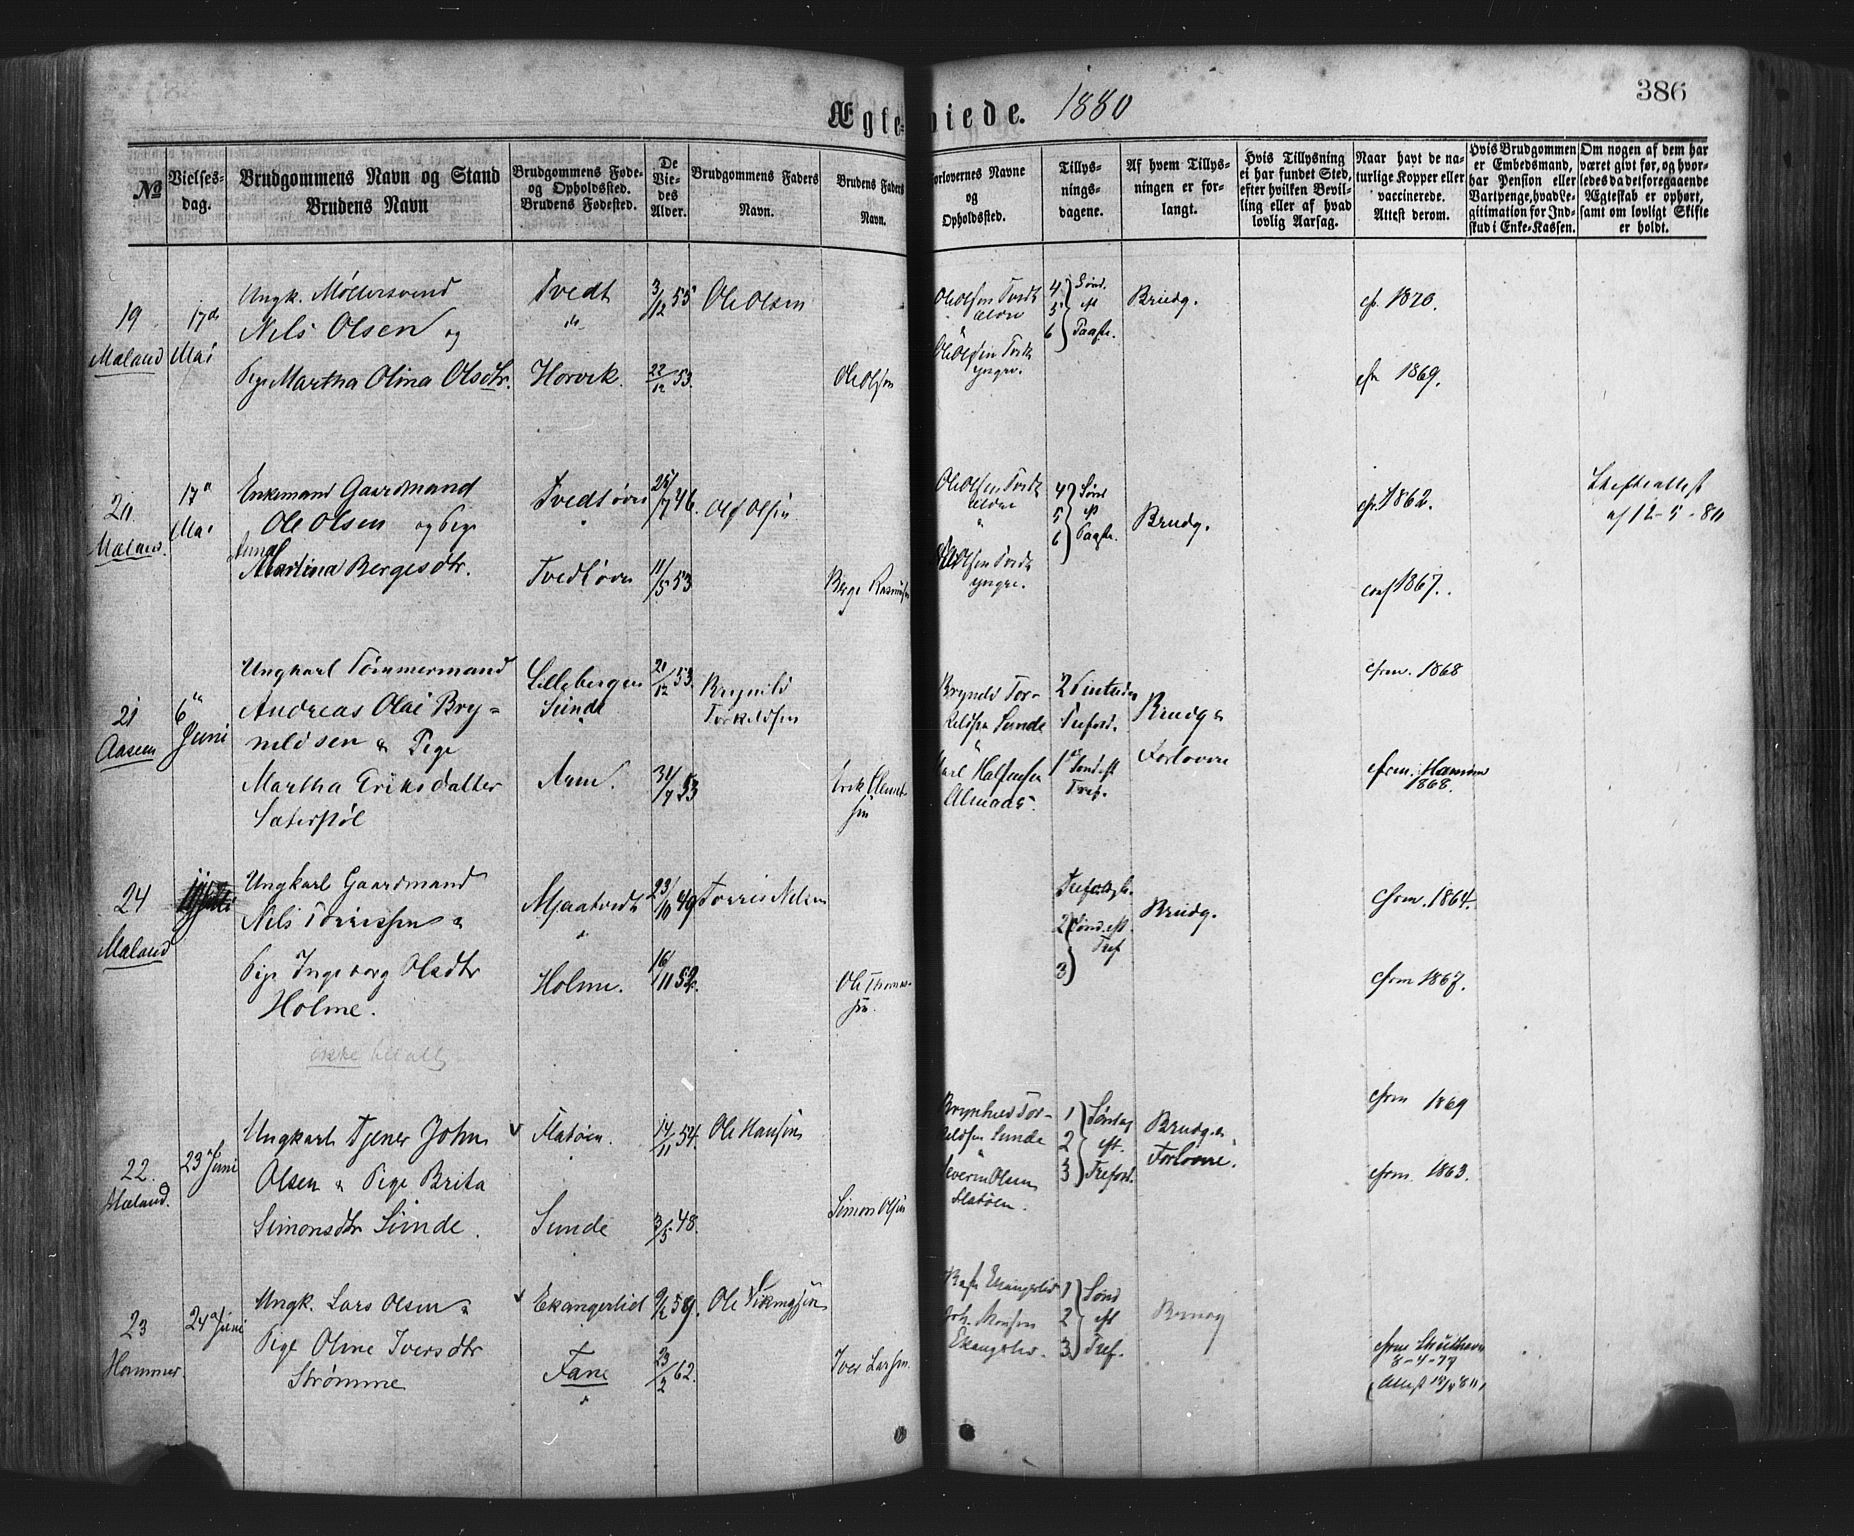 Ægte- viede. 1880
386
No
Vielses-
dag.
Brudgommens Navn og Stand
Brudens Navn
Brudgommens Føde-
og Opholdssted.
Brudens Fødested.
De
Vie-
des
Alder.
Brudgommens Faders
Navn.
Brudens Faders
Navn.
Forlovernes Navne
og
Opholdssted.
Tillys-
nings-
dagene.
Af hvem Tillys-
ningen er for-
langt.
Hvis Tillysning
ei har fundet Sted,
efter hvilken Bevil-
ling eller af hvad
lovlig Aarsag.
Naar havt de na-
turlige Kopper eller
vaccinerede.
Attest derom.
Hvis Brudgommen
er Embedsmand,
har Pension eller
Vartpenge, hvad Le-
gitimation for Ind-
skud i Enke-Kassen.
Om nogen af dem har
været gift før, og hvor-
ledes da det foregaaende
Ægteskab er ophørt,
samt om lovligt Skifte
er holdt.
19
Mæland
17de
Mai
Ungk. Møllersvend
Nels Olsen og
Pige Martha Olina Olsdtr.
Tvedt
Horvik.
3/12 55
22/12 53.
Ole Olsen
Ole Olsen
Ole Olsen Tvedt
ældre
Ole Olsen Tvedt
yngre.
4
5
6
Sønd.
eft
Paaske.
Brudg.
1870.
1869.
20
Mæland.
17
Mai
Enkemand Gaardmand
Ole Olsen og Pige
Anna
Martina Bergesdtr.
Tvedtøen
Tvedtøen
25/7 46.
11/5 53
Ole Olsen
Berge Rasmusen
Ole Olsen Tvedt
ældre
Ole Olsen Tvedt
yngre.
4
5
6
Sønd
eft
Paaske.
Brudg.
1862.
conf 1867.
Skifteattest
af 12-5-80
21
Aasen
6
Juni
Ungkarl Tømmermand
Andreas Olai Bry=
nildsen & Pige
Martha Eriksdatter
Sæterstøl
Lillebergen
Sunde
21/12 53.
31/7 53
Brynild
Torkeldsen
Erik
sen
Brynild Tor-
keldsen Sunde
2
Trefold.
1
Sønd eft
Tref.
Brudg &
Forlovere
Cfrm. 1868
Cfrm.
1868.
24
Mæland
Ungkarl Gaardmand
Nils Torrissen &
Pige Ingeborg Olsdtr
Holme.
Mjaatvedt
Holme.
23/10 49
16/11 52.
Torris Nelsen
Ole Thomas-
sen.
2
Sønd. eft
Tref
3
Brudg.
Cfrm. 1864.
Cfrm 1867.
ikke betalt
22.
Mæland.
23 Juni
Ungkarl Tjener John
Olsen & Pige Brita
Simonsdtr Sunde.
Flatøen.
Sunde
14/11 54.
3/5 48.
Ole Hansen
Simon Olsen
Brynhild Tor-
keldsen Sunde
Severin Olsen
Flatøen.
1
2
3
Søndag
eft.
Trefold.
Brudg. &
Forlovere.
Cfrm 1869
Cfrm. 1863.
23
Hammer.
24 Juni
Ungk. Lars Olsen &
Pige Oline Iversdtr
Strømme
Ekangerlid
Fane
9/2 59.
23/2 62.
Ole
Iver Larsen.
Ekangerlid
Ekangerlid.
1
2
3
Sønd
eft
Tref.
Brudg
Cfrm
8-4-77